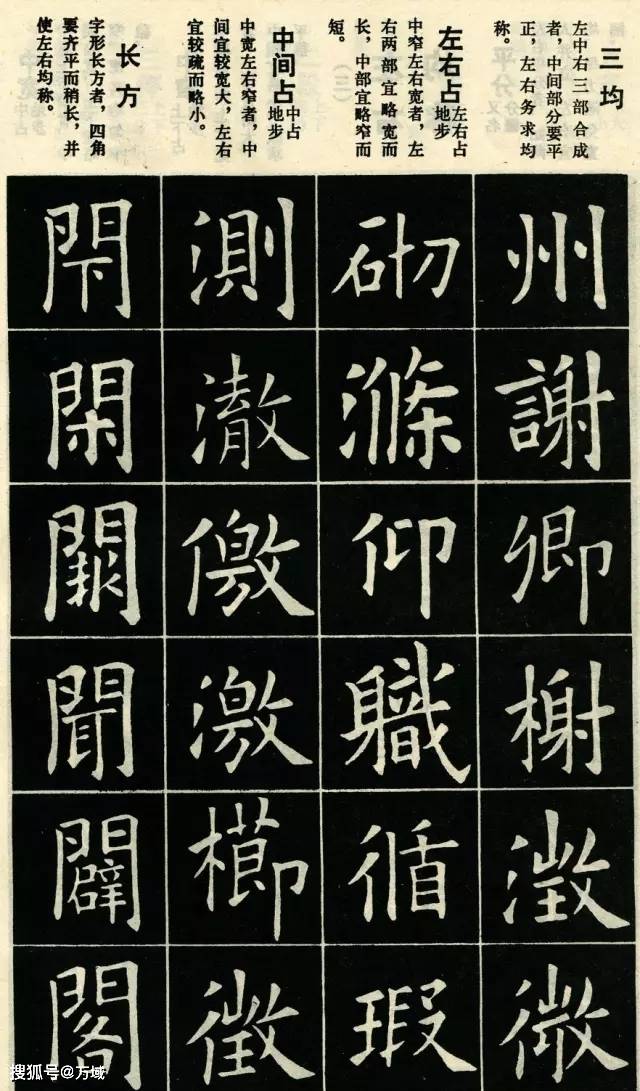 三均
左中右三部合成
者，中间部分要平
正，左右务求均
称。
左右占 左右占地步
中窄左右宽者，左
右两部宜略宽而
长，中部宜略窄而
短。
中间占 中占地步
中宽左右窄者，中
间宜较宽大，左右
宜较疏而略小。
长方
字形长方者，四角
要齐平而稍长，并
使左右均称。
州謝卿榭澂微
砌滌仰職循瑕
測澈儌激櫛徵
閇閑闕聞闢閣
搜狐号@万域